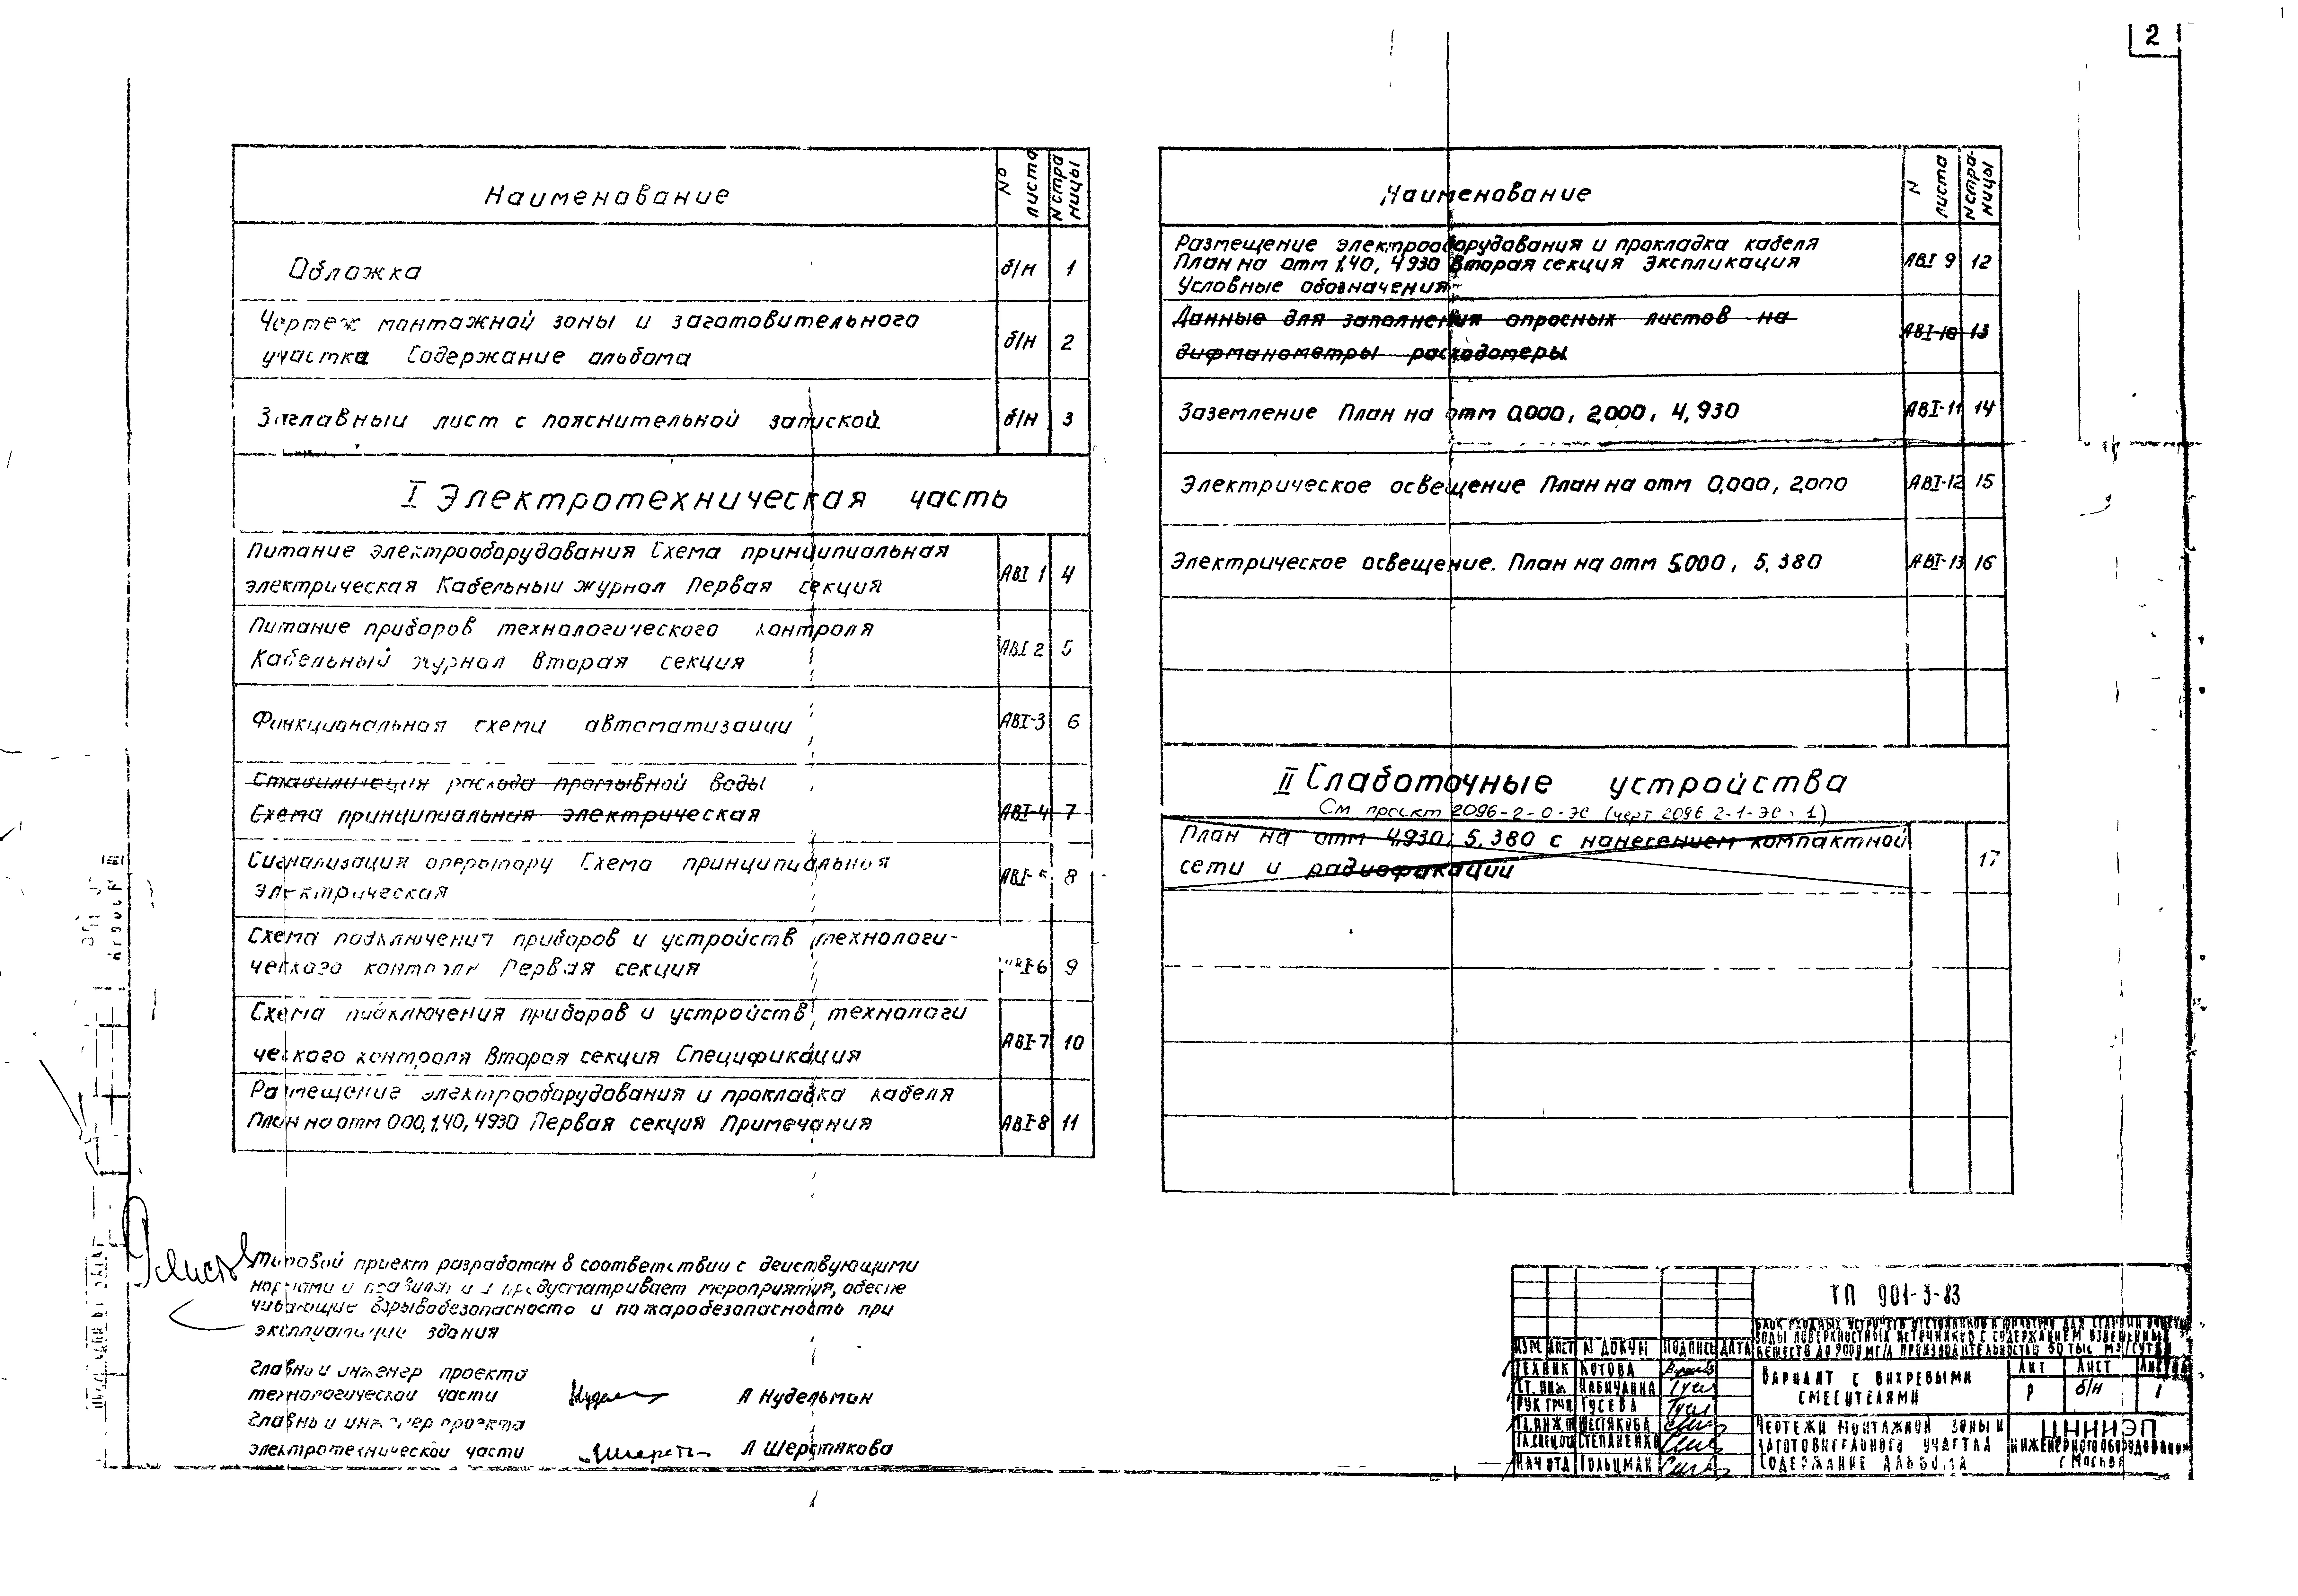 2
Наименование
№ листа
N страницы
Обложка
б/н 1
Чертеж монтажной зоны и заготовительного
участка Содержание альбома
б/н 2
Заглавный лист с пояснительной запиской
б/н 3
I Электротехническая часть
Питание электрооборудования Схема принципиальная
электрическая Кабельный журнал Первая секция
АВI 1 4
Питание приборов технологического контроля
Кабельный журнал Вторая секция
АВI 2 5
Функциональная схема автоматизации
АВI-3 6
Стабилизация расхода промывной воды
Схема принципиальная электрическая
АВI-4 7
Сигнализация оператору Схема принципиальная
электрическая
АВI-5 8
Схема подключения приборов и устройств технологи-
ческого контроля Первая секция
АВI-6 9
Схема подключения приборов и устройств технологи
ческого контроля Вторая секция Спецификация
АВI-7 10
Размещение электрооборудования и прокладка кабеля
План на отм 000, 1.40, 4930 Первая секция Примечания
АВI-8 11
Наименование
N листа
N страницы
Размещение электрооборудования и прокладка кабеля
План на отм 1.40, 4930 Вторая секция Экспликация
Условные обозначения
АВI 9 12
Данные для заполнения опросных листов на
дифманометры расходомеры
АВI-10 13
Заземление План на отм 0.000, 2.000, 4,930
АВI-11 14
Электрическое освещение План на отм 0,000, 2,000
АВI-12 15
Электрическое освещение. План на отм 5.000, 5.380
АВI-13 16
II Слаботочные устройства
См проект 2096-2-0-ЭС (черт 2096 2-1-ЭС-1)
План на отм 4.930; 5.380 с нанесением компактной
сети и радиофикации
17
листов
Типовой проект разработан в соответствии с действующими
нормами и правилами и предусматривает мероприятия, обеспе
чивающие взрывобезопасность и пожаробезопасность при
эксплуатации здания
Главный инженер проекта
технологической части
А Нудельман
Главный инженер проекта
электротехнической части
Л Шерстякова
ТП 901-3-83
Блок входных устройств отстойников и фильтров для станции очистки
воды поверхностных источников с содержанием взвешенных
веществ до 2000 мг/л производительностью 50 тыс м3/сутки
Изм Лист № докум Подпись Дата
Техник Котова
Ст. инж Набичкина
Рук груп Гусева
Гл. инж пр Шестякова
Гл. спец от Степаненко
Нач отд Гольцман
Вариант с вихревыми
смесителями
Лит Лист
Р б/н 1
Чертежи монтажной зоны и
заготовительного участка
Содержание альбома
ЦНИИЭП
инженерного оборудования
г Москва